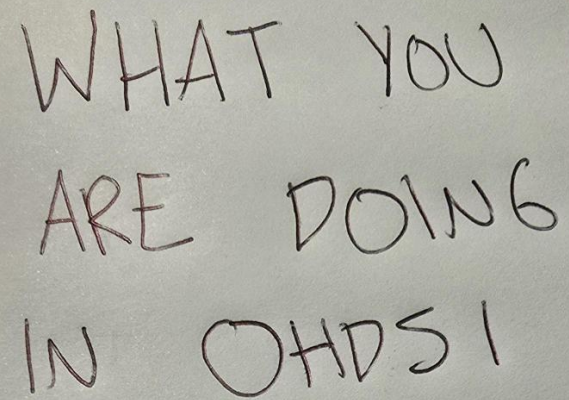 WHAT YOU
ARE DOING
IN OHDSI